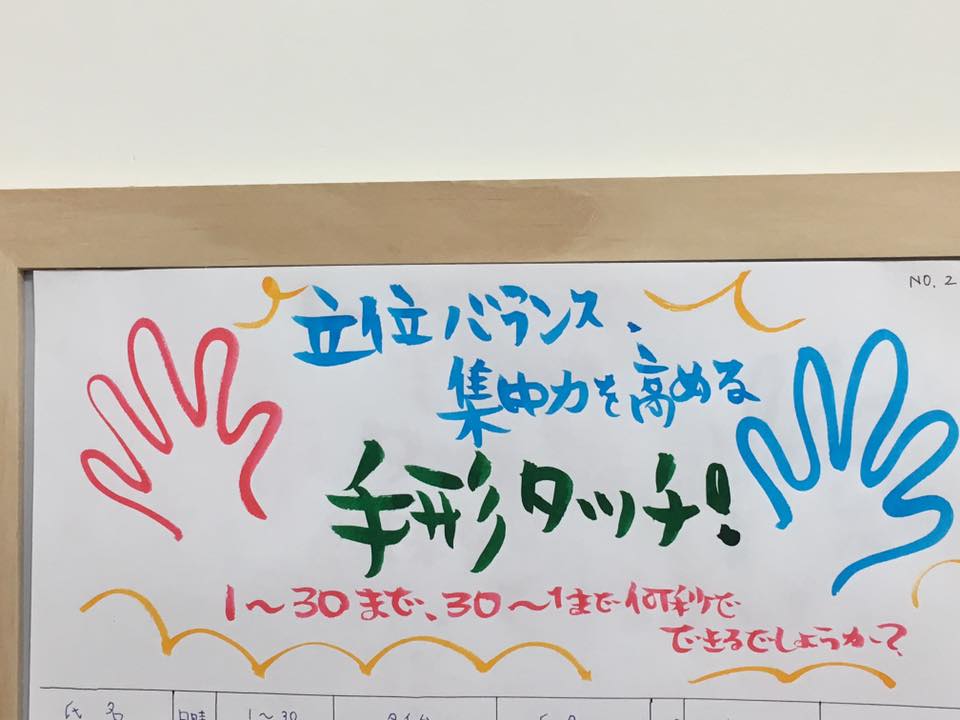 NO.2
立位バランス、
集中力を高める
手形タッチ!
1〜30まで、30〜1まで何秒で
できるでしょうか?
氏名 日時 1〜30